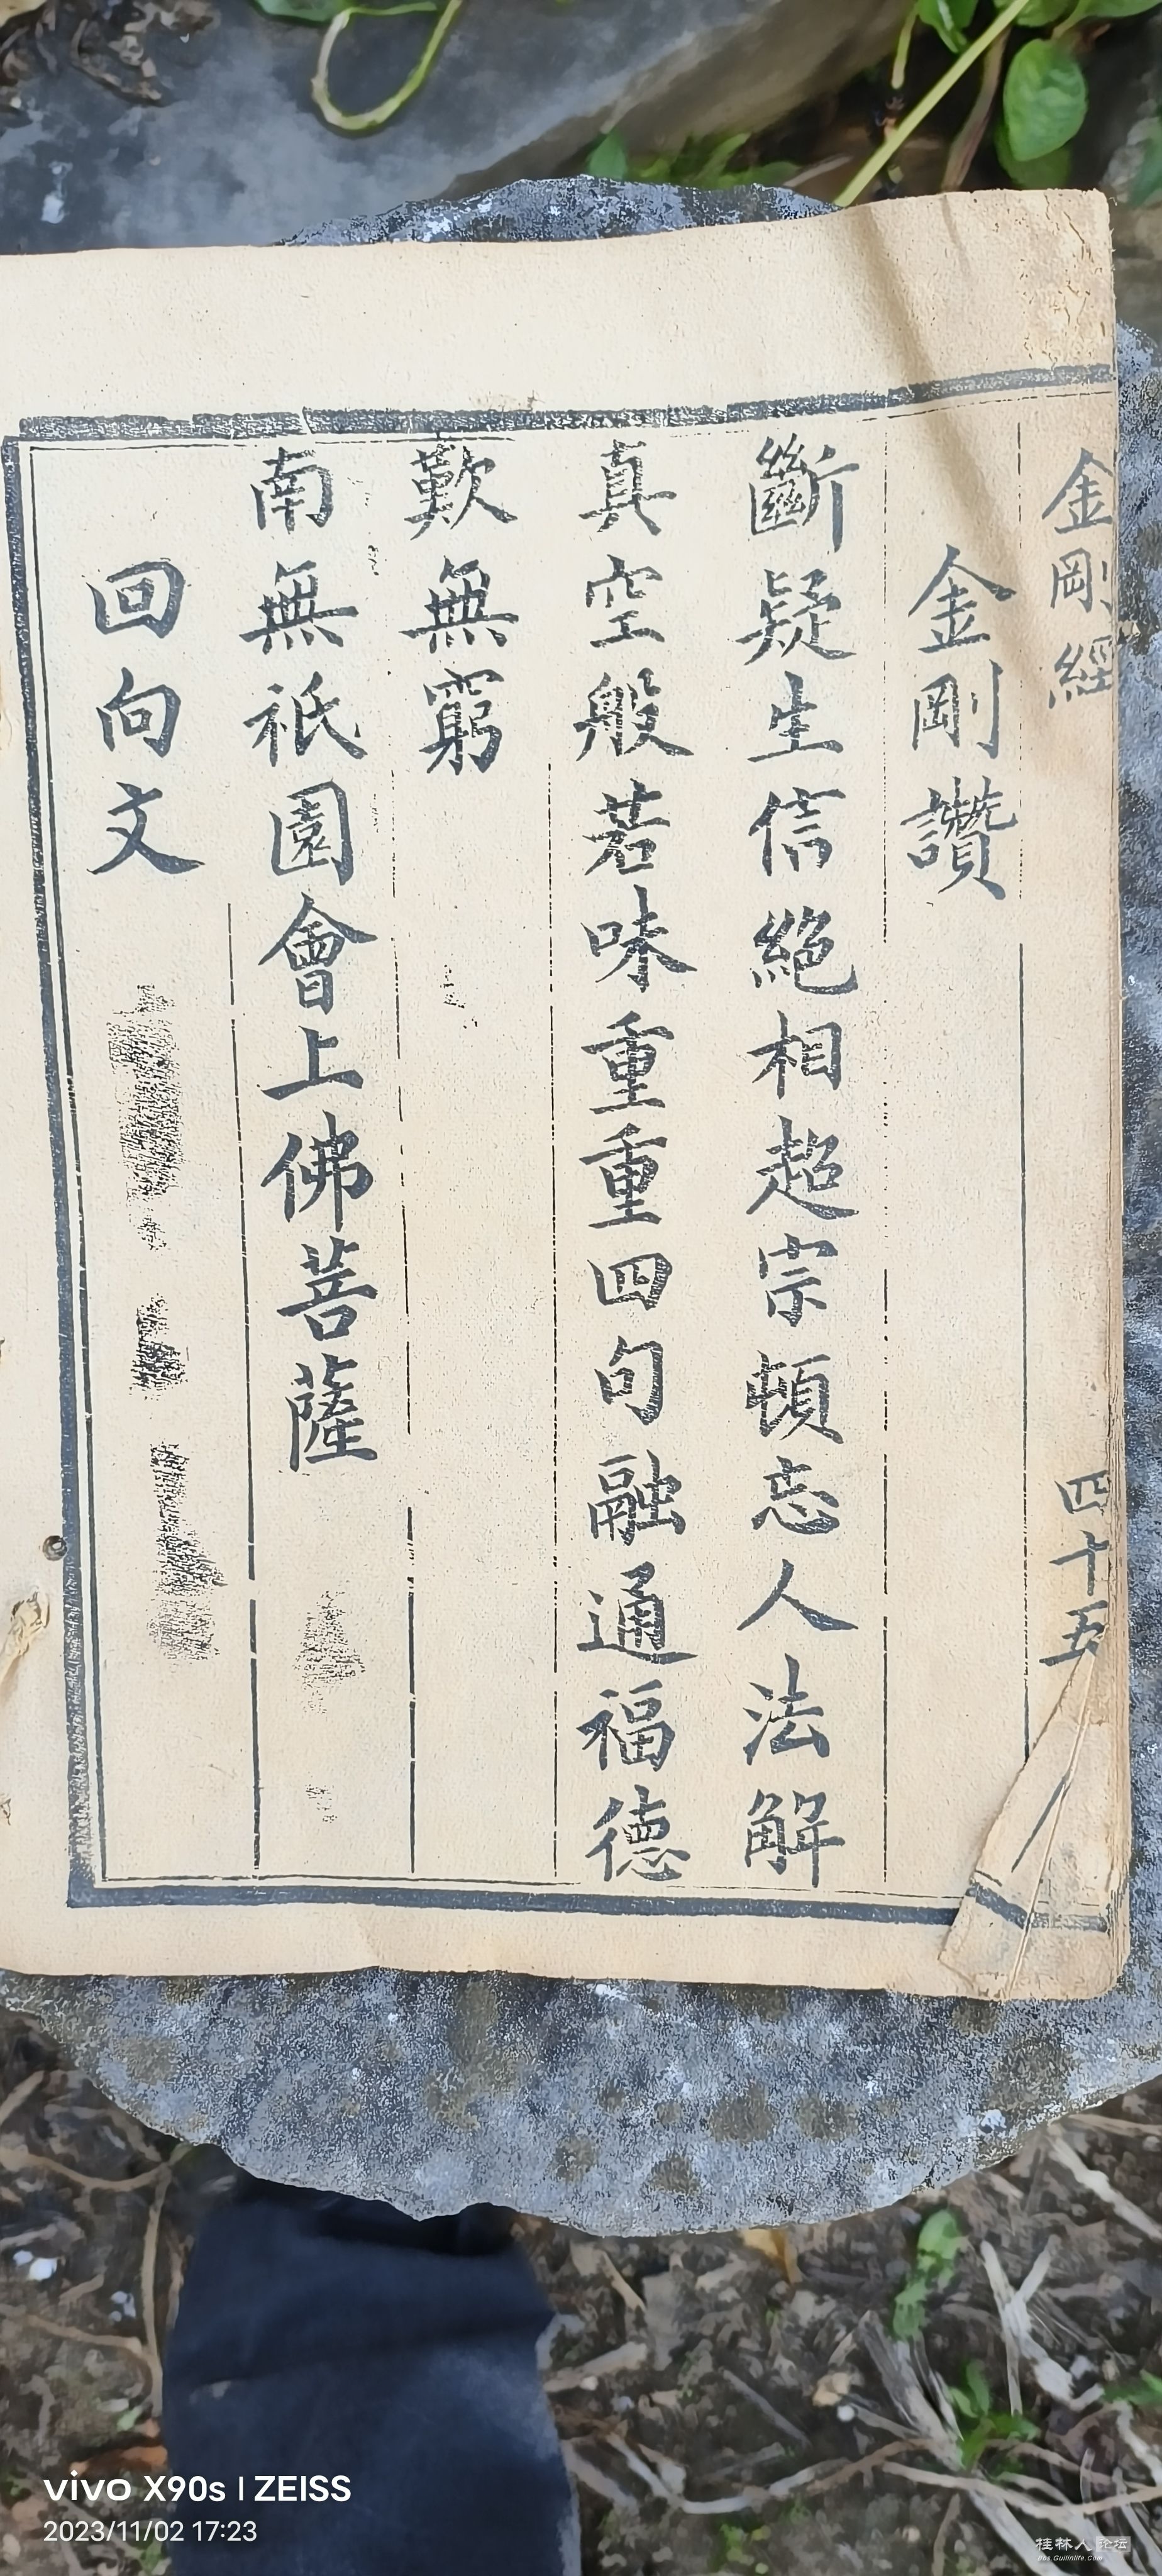 金剛經 四十五
金剛讚
斷疑生信絕相超宗頓忘人法解
真空般若味重重四句融通福德
歎無窮
南無祇園會上佛菩薩
回向文
vivo X90s | ZEISS
2023/11/02 17:23
桂林人论坛
Bbs.Guilinlife.Com